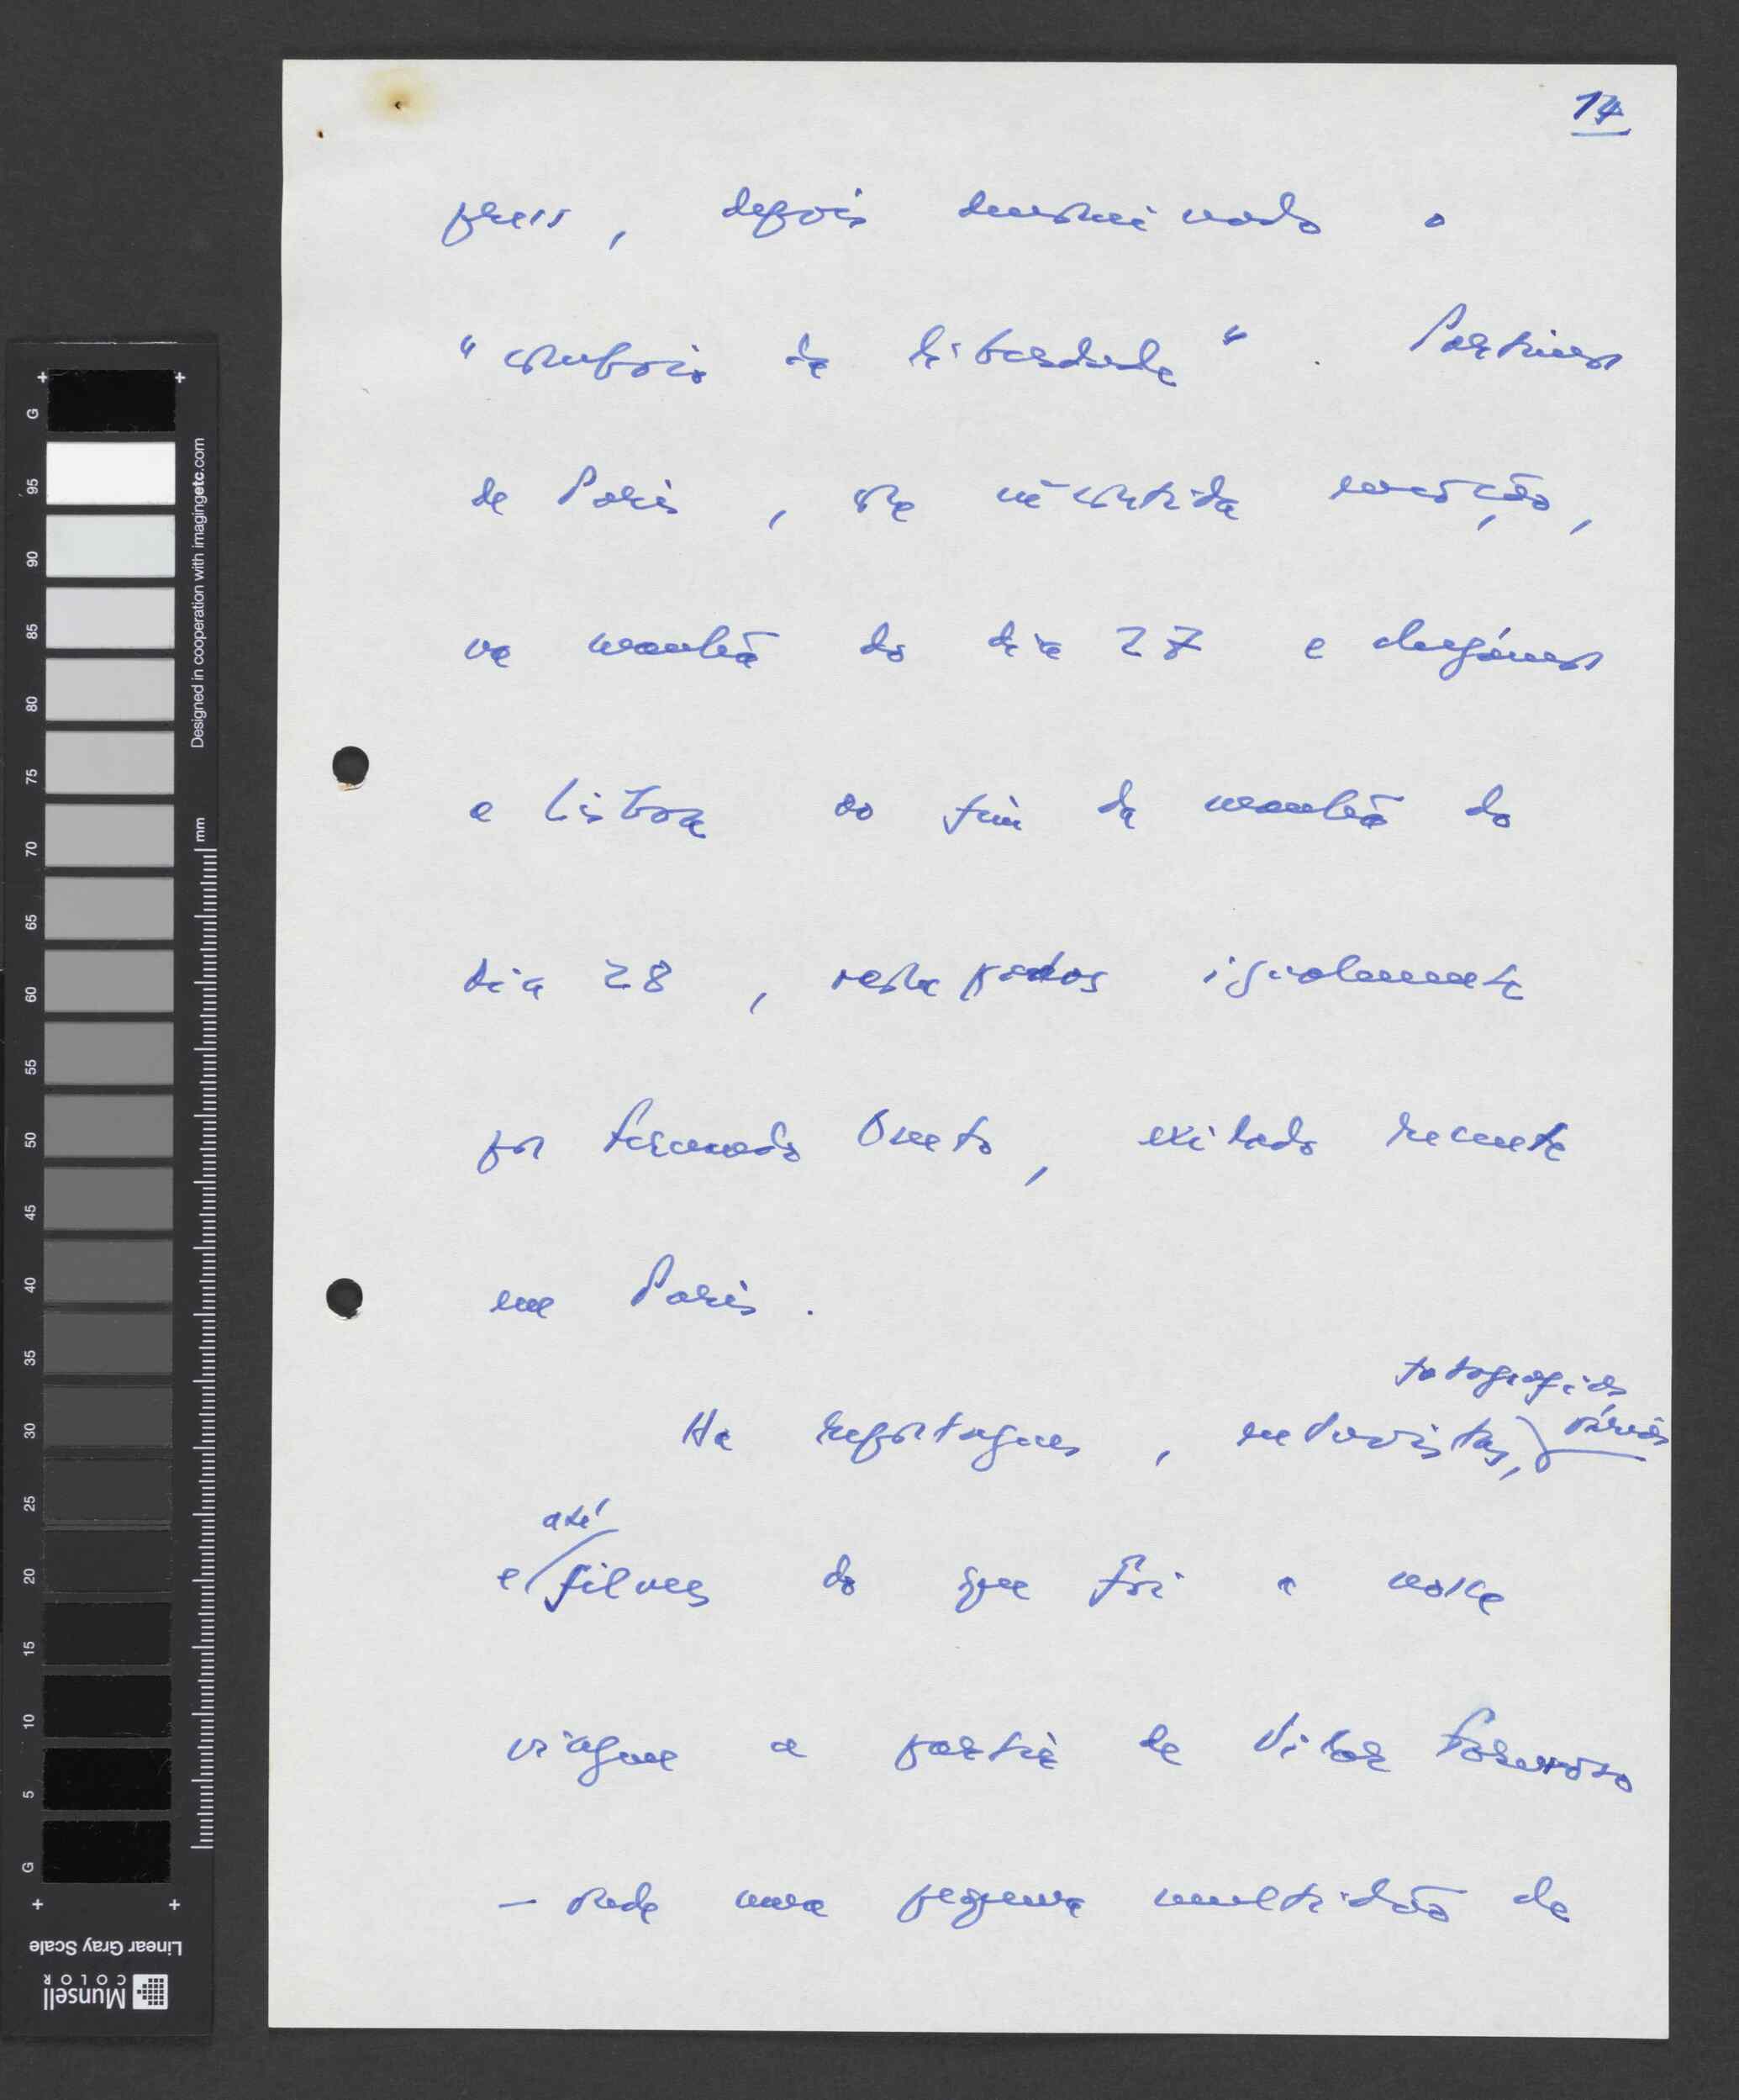 14
press, depois denominado o
"comboio da liberdade". Partimos
de Paris, com incontida emoção,
na manhã do dia 27 e chegámos
a Lisboa ao fim da manhã do
dia 28, acompanhados igualmente
por Fernando Oneto, exilado recente
em Paris.
fotografias
Há reportagens, entrevistas, várias
até
e filmes do que foi a nossa
viagem a partir de Vilar Formoso
— onde uma pequena multidão de
G
95
90
85
80
75
70
65
60
55
50
45
40
35
30
25
20
15
10
5
G
Designed in cooperation with imagingetc.com
mm
Linear Gray Scale
Munsell
COLOR